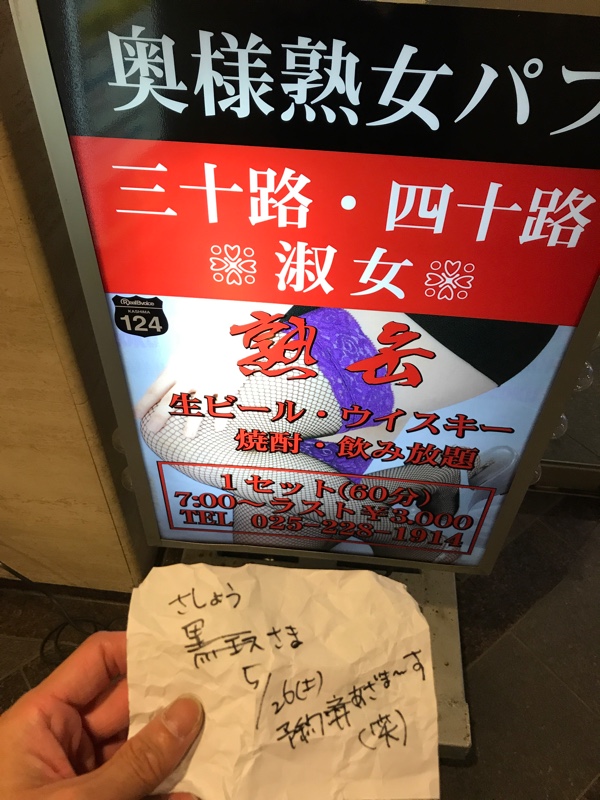 奥様熟女パブ
三十路・四十路
淑女
RealBvoice
KASHIMA
124
熟女
生ビール・ウイスキー
焼酎・飲み放題
1セット(60分)
7:00〜ラスト¥3,000
TEL 025-228-1914
さしょう
黒霧さま
5/26(土)
予約 あざま〜す
(笑)